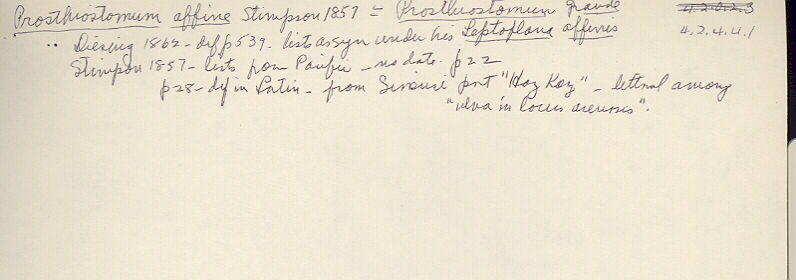 Prosthiostomum affine Stimpson 1857 = Prosthiostomum grande
4.2.4.4.1
.. Diesing 1862 - def p 539 - list as syn under his Leptoplana affinis
Stimpson 1857 - lists from Pacific - no data. p 22
p 28 - def in Latin - from Sinensi port "Hong Kong" - littoral among
"ulva in locus arenosis".